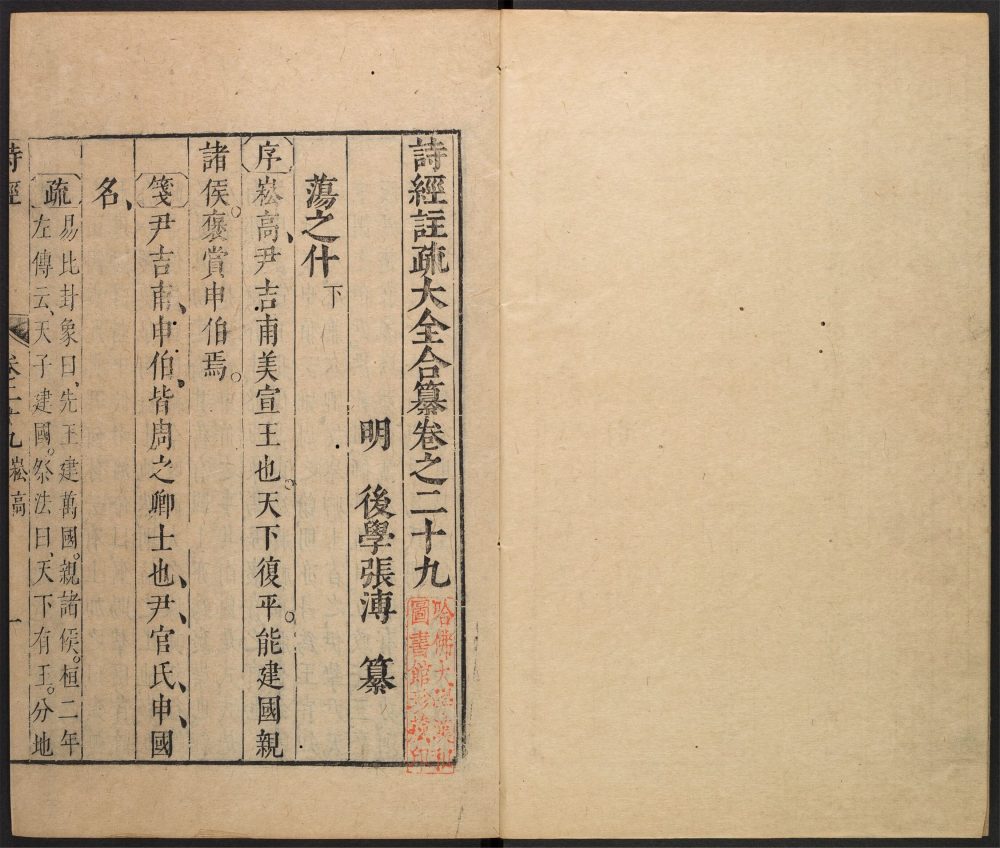 詩經註疏大全合纂卷之二十九
哈佛大學漢和
圖書館珍藏印
明 後學張溥 纂
蕩之什 下
序崧高、尹吉甫美宣王也。天下復平。能建國親
諸侯。褒賞申伯焉。
箋尹吉甫、申伯、皆周之卿士也、尹、官氏、申、國
名、
疏易比封象曰、先王建萬國。親諸侯。桓二年
左傳云、天子建國。祭法曰、天下有王。分地
詩經 卷二十九 崧高 一